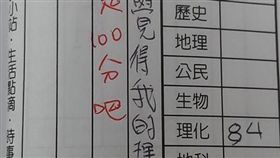 小站．生活點滴．時事
100分吧
見得我的理
歷史
地理
公民
生物
理化 84
地科